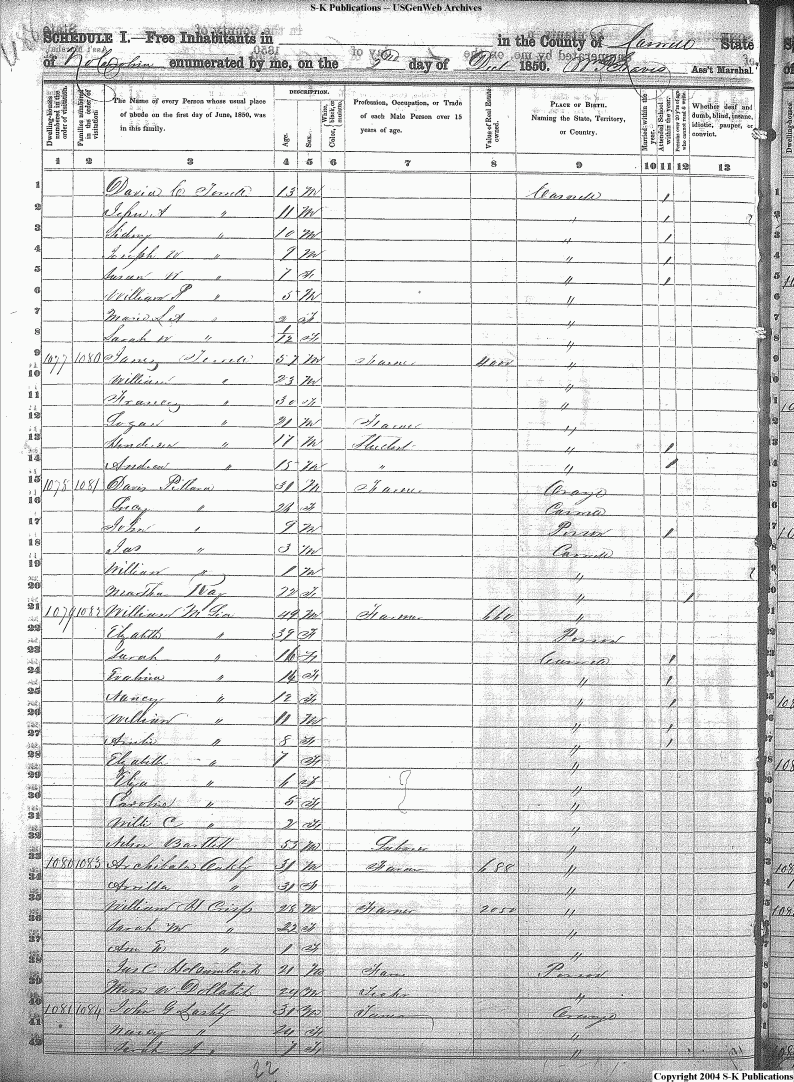 S-K Publications -- USGenWeb Archives
SCHEDULE I.—Free Inhabitants in in the County of Caswell State
of No Carolina enumerated by me, on the 3rd day of Oct 1850. Ass't Marshal.
Dwelling-houses numbered in the order of visitation.
Families numbered in the order of visitation.
The Name of every Person whose usual place of abode on the first day of June, 1850, was in this family.
DESCRIPTION.
Age.
Sex.
White, Color, black, or mulatto.
Profession, Occupation, or Trade of each Male Person over 15 years of age.
Value of Real Estate owned.
PLACE OF BIRTH. Naming the State, Territory, or Country.
Married within the year.
Attended School within the year.
Persons over 20 y'rs of age who cannot read & write.
Whether deaf and dumb, blind, insane, idiotic, pauper, or convict.
1 2 3 4 5 6 7 8 9 10 11 12 13
1 David C Terrell 13 M Caswell 1
2 John A " 11 M " 1
3 Sidney " 10 M " 1
4 Joseph W " 9 M " 1
5 Susan W " 7 F " 1
6 William P " 5 M "
7 Maria L A " 2 F "
8 Sarah W " 1/12 F "
9 1077 1080 James Terrell 57 M Farmer 4000 "
10 William " 23 M "
11 Frances " 30 F "
12 Logan " 21 M Farmer "
13 Henderson " 17 M Student " 1
14 Andrew " 15 M " " 1
15 1078 1081 Davis Pillard 31 M Farmer Orange
16 Lucy " 26 F Caswell
17 John " 9 M Person 1
18 Jas " 3 M Caswell
19 William " 1 M "
20 Martha Ray 72 F " 1
21 1079 1082 William 49 M Farmer 660 "
22 Elizabeth " 39 F Person
23 Sarah " 16 F Caswell 1
24 " 14 F " 1
25 Nancy " 12 F " 1
26 William " 11 M " 1
27 " 8 F " 1
28 Elizabeth " 7 F "
29 Eliza " 6 F "
30 Caroline " 5 F "
31 Willi C " 2 F "
32 Bartlett 53 M "
33 1080 1083 Archibald Oakly 31 M Farmer 688 "
34 " 31 F "
35 William H Crisp 28 M Farmer 2050 "
36 Sarah M " 22 F "
37 Ann E " 1 F "
38 Jas C 21 M Farm Person
39 24 M
40 1081 1084 John G Lashly 31 M Farmer Orange
41 Nancy " 24 F "
42 Sarah J " 7 F "
22
Copyright 2004 S-K Publications